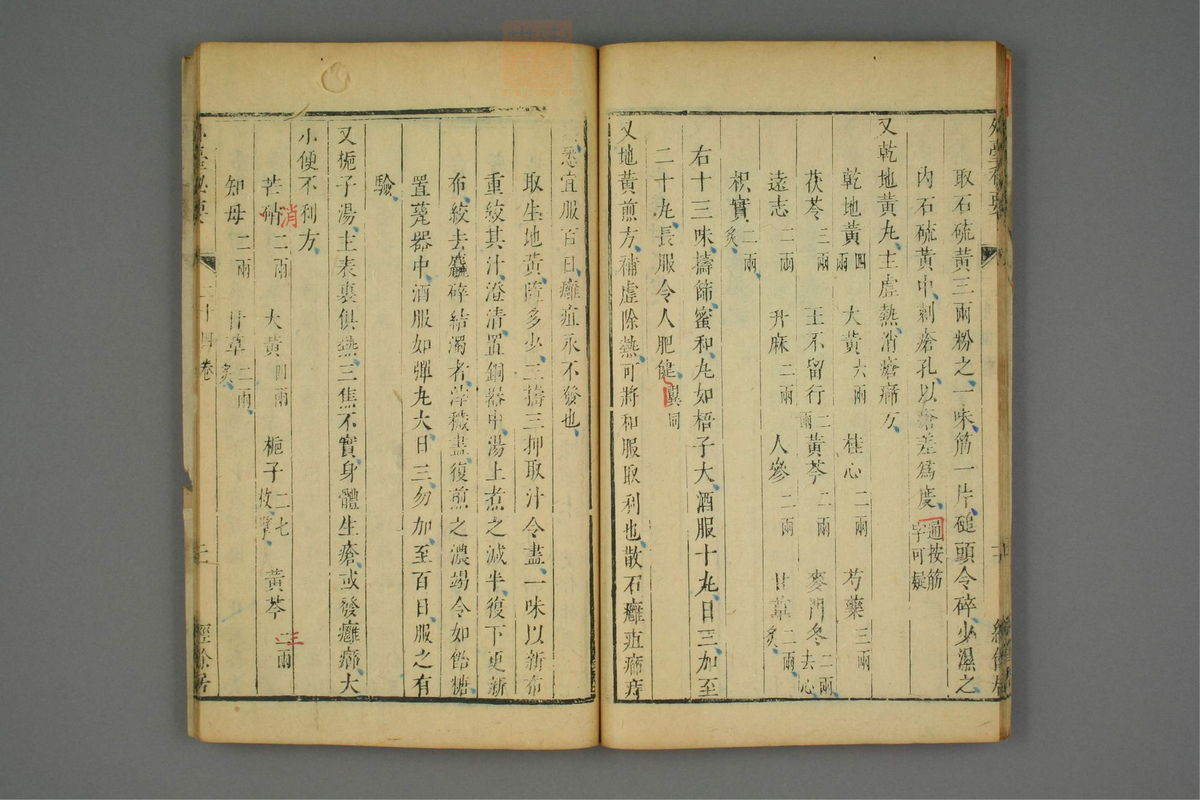 取石硫黃三兩粉之一味筋一片槌頭令碎少濕之
內石硫黃中刺瘡孔以瘡差爲度 過按筋字可疑
又乾地黃丸主虛熱消瘡癤方
乾地黃四兩 大黃六兩 桂心二兩 芍藥三兩
茯苓三兩 王不留行二兩 黃芩二兩 麥門冬二兩去心
遠志二兩 升麻二兩 人參二兩 甘草二兩炙
枳實二兩炙
右十三味擣篩蜜和丸如梧子大酒服十丸日三加至
二十丸長服令人肥健 翼同
又地黃煎方補虛除熱可將和服取利也散石癰疽癤痔
悉宜服百日癰疽永不發也
取生地黃隨多少三擣三押取汁令盡一味以新布
重絞其汁澄清置銅器中湯上煮之減半復下更新
布絞去麤碎結濁者滓穢盡復煎之濃竭令如飴糖
置甆器中酒服如彈丸大日三勿加至百日服之有
驗
又梔子湯主表裏俱熱三焦不實身體生瘡或發癰癤大
小便不利方
芒硝二兩 消 大黃四兩 梔子二七枚擘 黃芩二兩 三
知母二兩 甘草二兩炙
二十四卷
經餘居